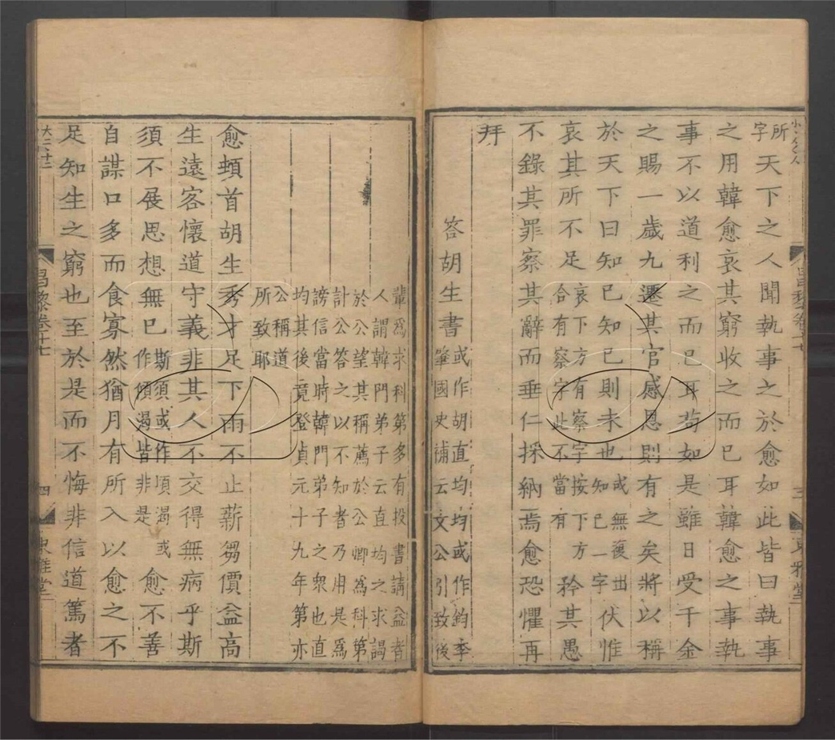 所字天下之人聞執事之於愈如此皆曰執事
之用韓愈哀其窮收之而已耳韓愈之事執
事不以道利之而已耳苟如是雖日受千金
之賜一歲九遷其官感恩則有之矣將以稱
於天下曰知已知已則未也或無復出知已一字伏惟
哀其所不足哀下方有察字按下方合有察字此不當有矜其愚
不錄其罪察其辭而垂仁採納焉愈恐懼再
拜
答胡生書或作胡直均均或作鈞李肇國史補云文公引致後
輩爲求科第多有投書請益者
人謂韓門弟子云直均之求謁
於公望其稱薦於公卿爲科第
計公答之以不知者乃用是爲
謗信當時韓門弟子之衆也直
均其後竟登貞元十九年第亦
公稱道
所致耶
愈頓首胡生秀才足下雨不止薪芻價益高
生遠客懷道守義非其人不交得無病乎斯
須不展思想無已斯須或作須渴或作傾渴皆非是愈不善
自謀口多而食寡然猶月有所入以愈之不
足知生之窮也至於是而不悔非信道篤者
昌黎卷十七
三
東雅堂
昌黎卷十七
四
東雅堂